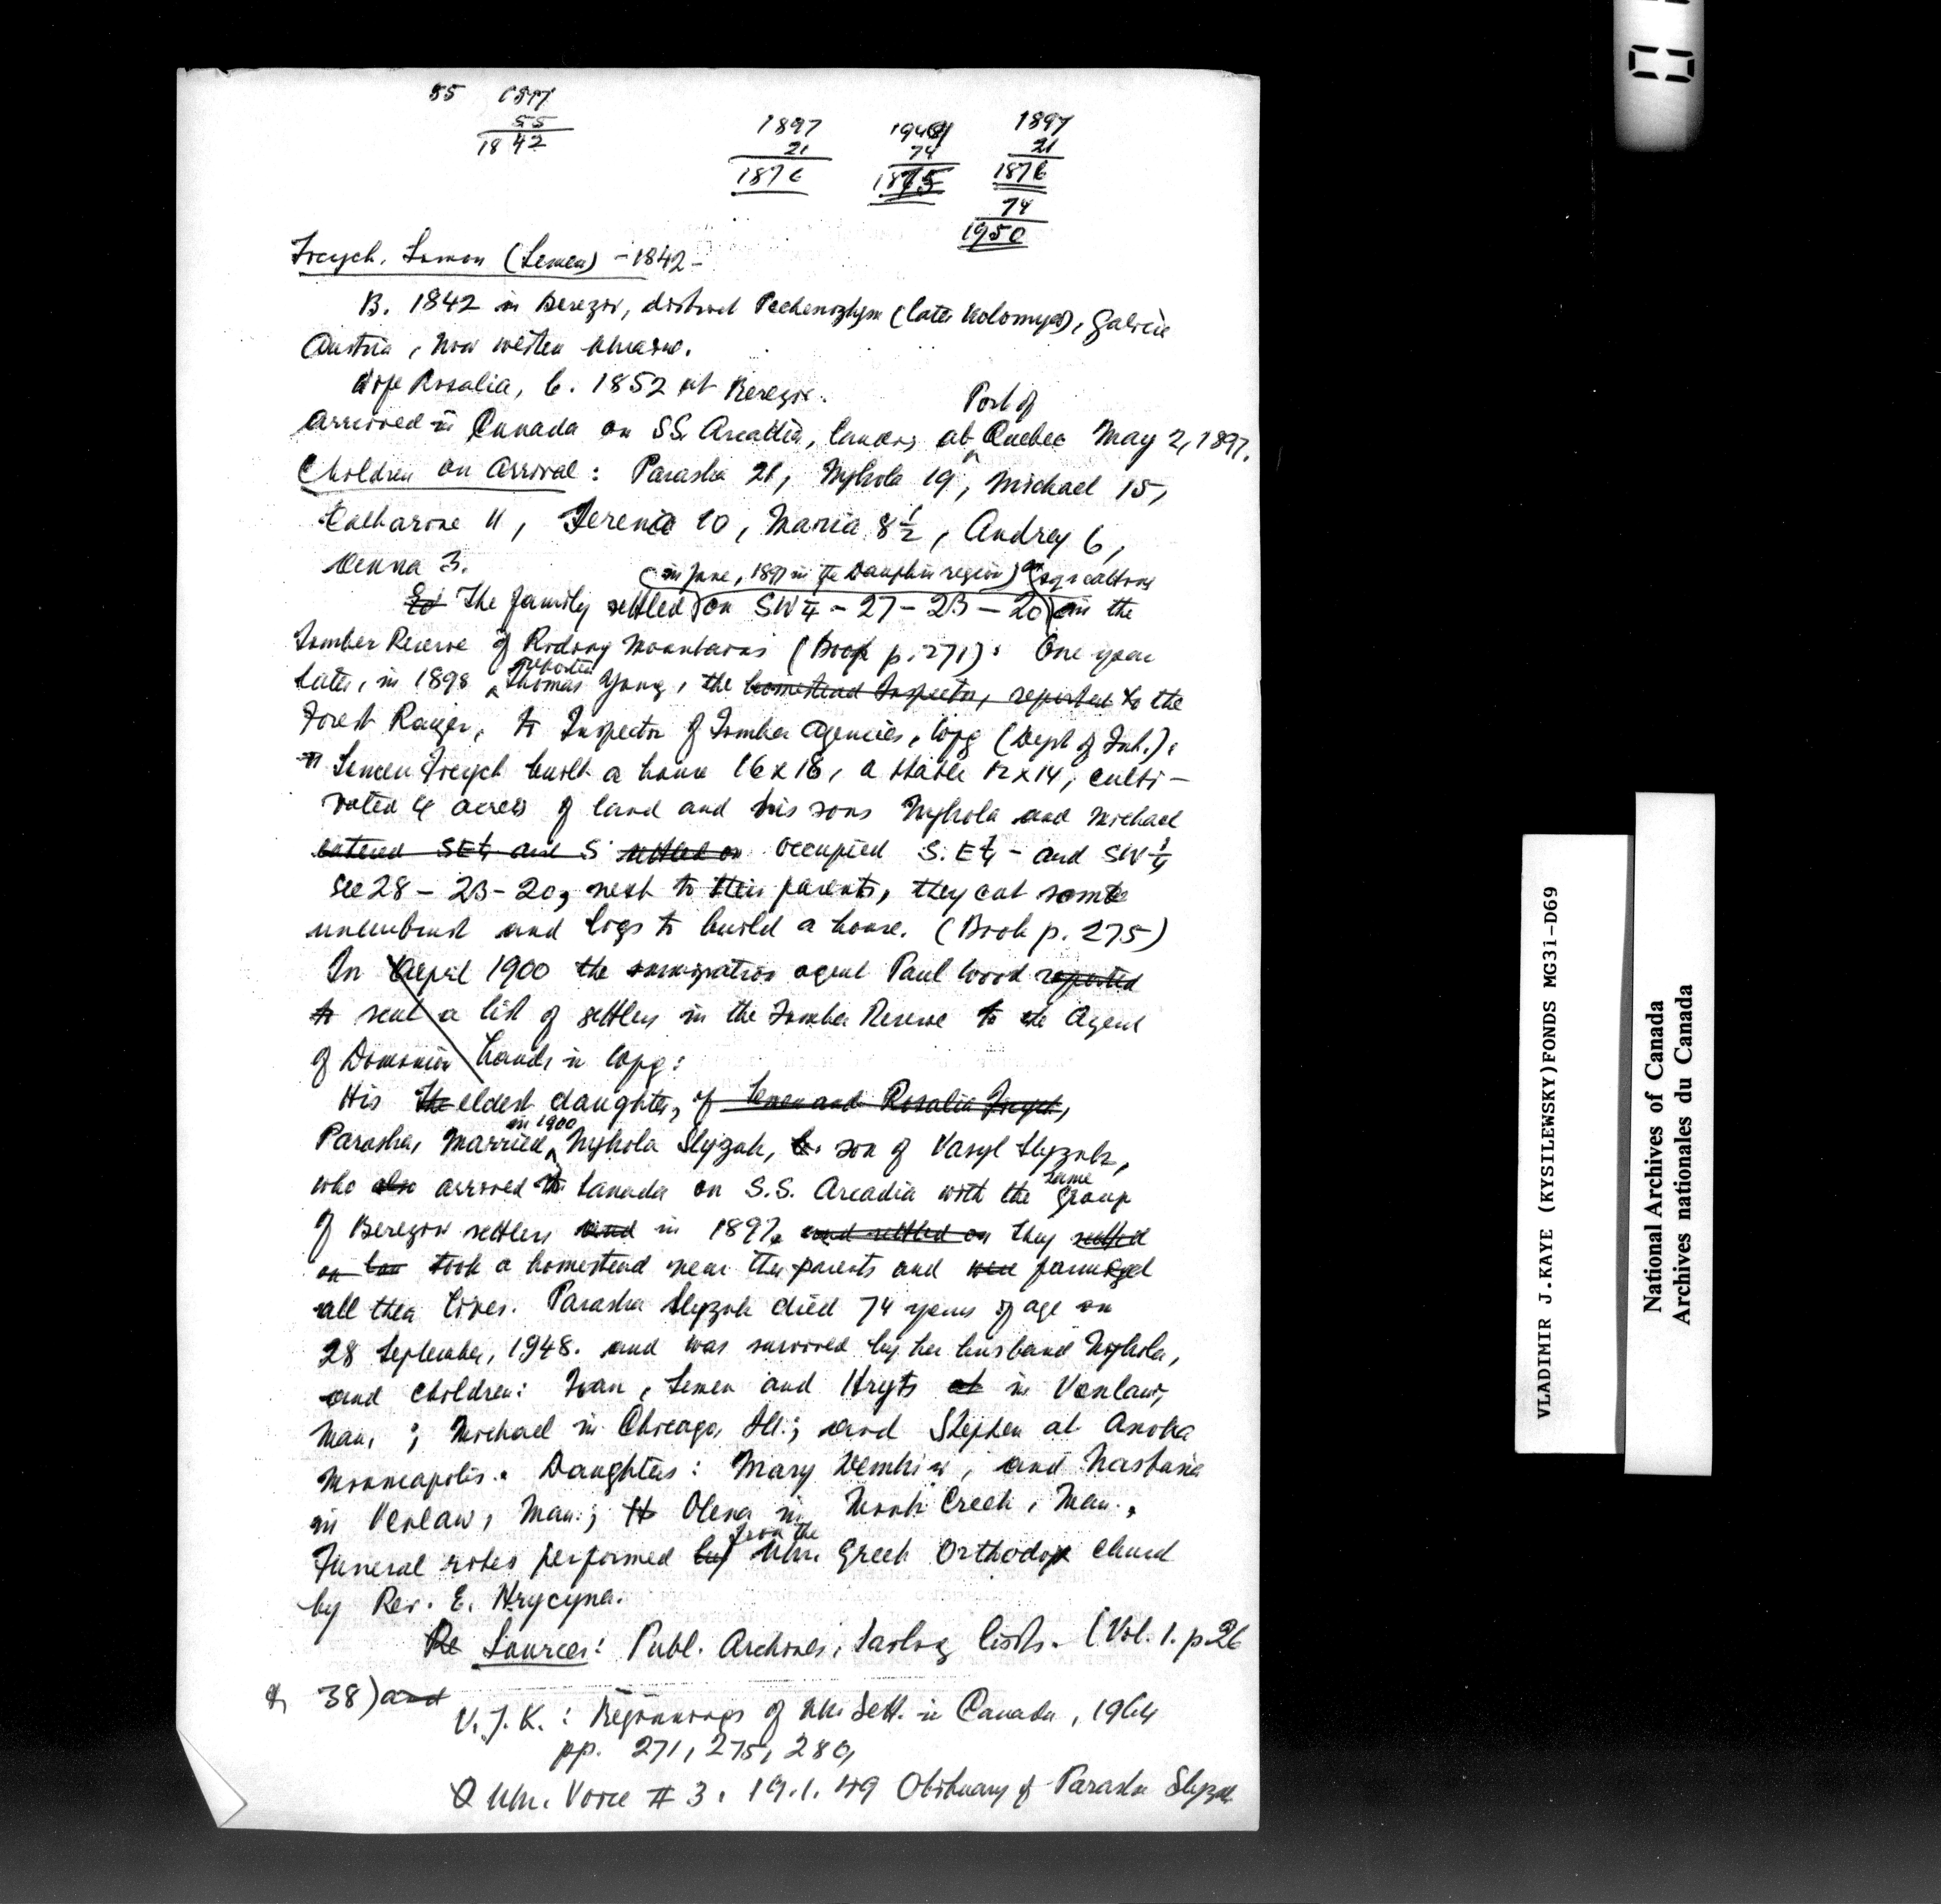 55 1897
55
1842
1897 1948 1897
21 74 21
1876 1875 1876
74
1950
Semen (Semen) - 1842 -
B. 1842 in Berezov, district Pechenizhyn (later Kolomyea), Galicia
Austria, now western Ukraine.
Wife Rosalia, b. 1852 at Berezov.
Port of
arrived in Canada on SS. Arcadia, landing at Quebec May 2, 1897.
Children on arrival: Parasha 21, Mykola 19, Michael 15,
Catharine 11, 10, Maria 8 1/2, Andrey 6,
3.
(in June, 1897 in the Dauphin region)
The family settled on SW 1/4 - 27 - 23 - 20 in the
Timber Reserve of Riding Mountains (Book p. 271). One year
reported
later, in 1898 Thomas Young, the homestead Inspector, reported to the
Forest Ranger, to Inspector of Timber Agencies, Wpg (Dept of Int.):
Semen built a house 16 x 18, a stable 12 x 14, culti-
vated 4 acres of land and his sons Mykola and Michael
entered SE 1/4 and S settled on occupied S.E 1/4 - and SW 1/4
Sec 28 - 23 - 20, next to their parents, they cut some
and logs to build a house. (Book p. 275)
In April 1900 the immigration agent Paul Wood reported
to sent a list of settlers in the Timber Reserve to the Agent
of Dominion Lands in Wpg:
His The eldest daughter, of Semen and Rosalia
in 1900
Parasha, married Mykola Slyzuk, b. son of Vasyl Slyzuk,
same
who also arrived in Canada on S.S. Arcadia with the group
of Berezov settlers and in 1897. and settled on they settled
on took a homestead near their parents and were farmed
all their lives. Parasha Slyzuk died 74 years of age on
28 September, 1948. and was survived by her husband Mykola,
and children: Ivan, Semen and Hryts at in Venlaw,
Man.; Michael in Chicago, Ill.; and Stephen at Anoka
Minneapolis. Daughters: Mary Demkiw, and Nastasia
in Venlaw, Man.; Olena in Mink Creek, Man.
from the
Funeral rites performed by Ukr. Greek Orthodox Church
by Rev. E. Hrycyna.
Re Sources: Publ. Archives, Sailing lists. (Vol. 1. p. 26
& 38) and
V.J.K.: Beginnings of Ukr. Sett. in Canada, 1964
pp. 271, 275, 280,
Ukr. Voice # 3. 19.1.49 Obituary of Parasha Slyzuk
VLADIMIR J.KAYE (KYSILEWSKY)FONDS MG31-D69
National Archives of Canada
Archives nationales du Canada